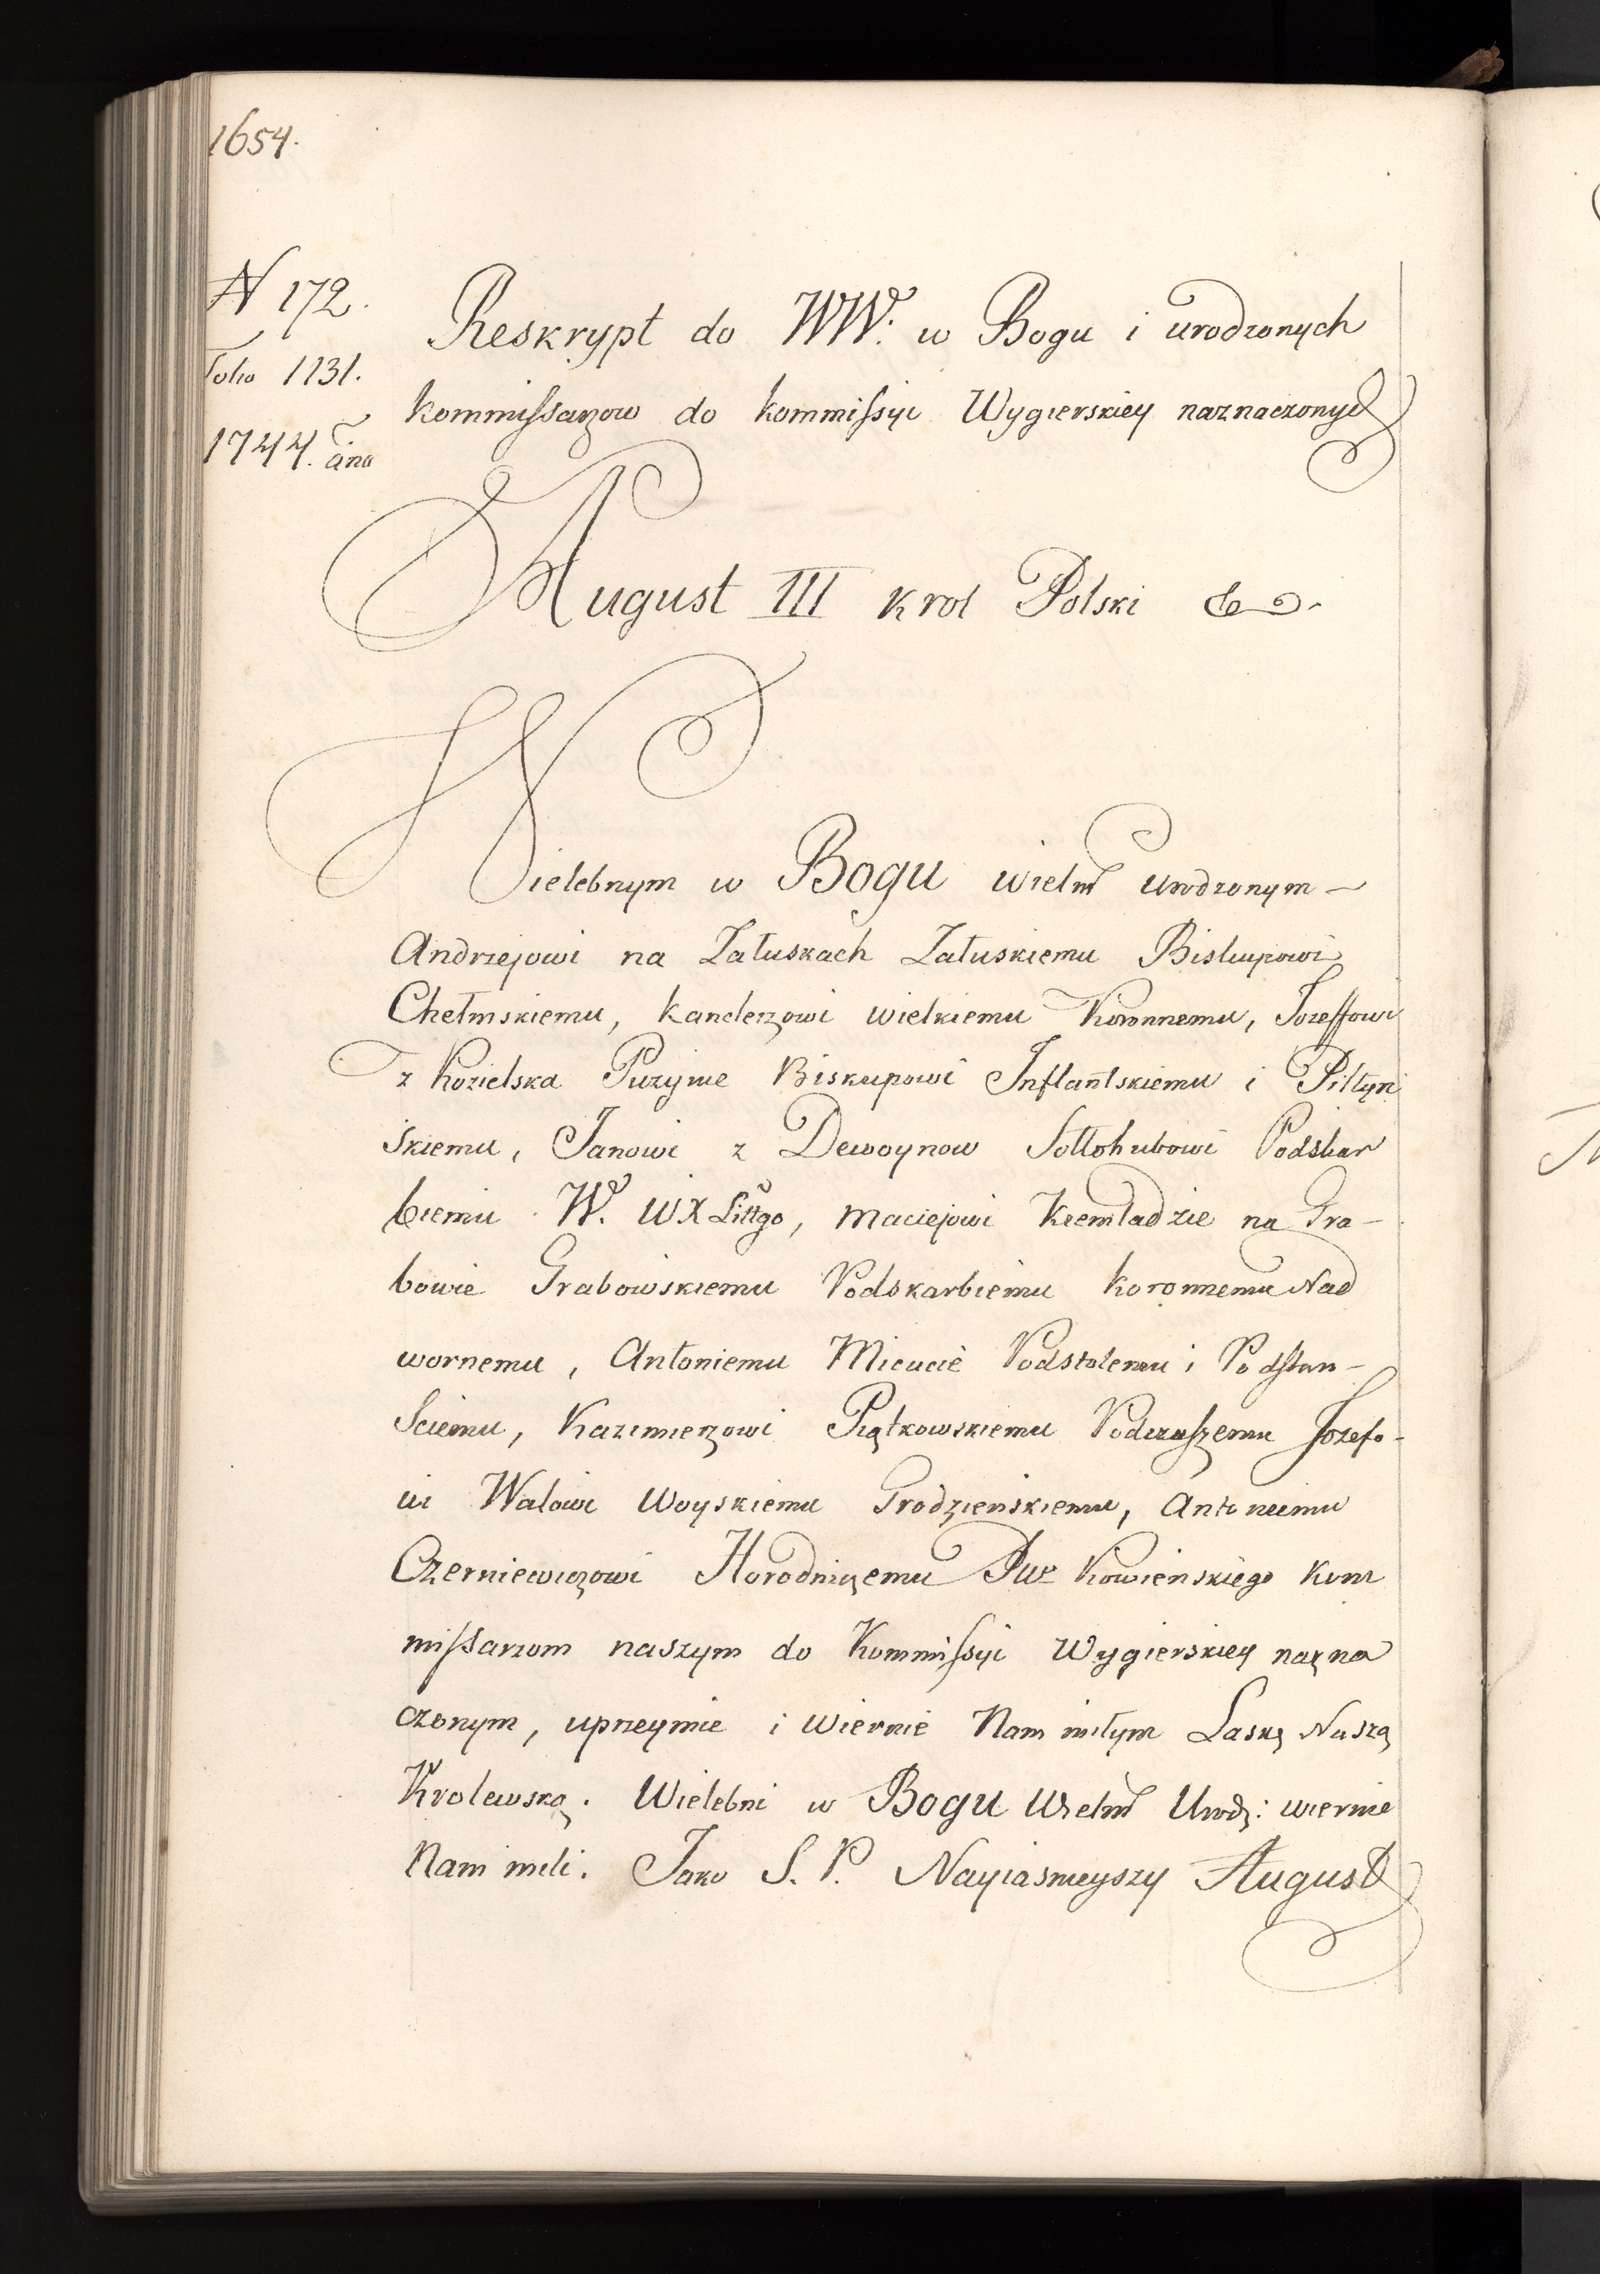 1654.
N 172.
Folio 1131.
1744. ano
Reskrypt do WW. w Bogu i urodzonych
kommissarzow do kommissyi Wygierskiey naznaczonych
August III Krol Polski &
Wielebnym w Bogu wielm urodzonym —
Andrzejowi na Załuskach Załuskiemu Biskupowi
Chełmskiemu, Kanclerzowi wielkiemu Koronnemu, Jozeffowi
z Kozielska Puzynie Biskupowi Inflantskiemu i Piltyn
skiemu, Janowi z Dewoynow Sołłohubowi Podskar
biemu W. WX Littgo, Maciejowi Kiemładzie na Gra-
bowie Grabowskiemu Podskarbiemu Koronnemu Nad
wornemu, Antoniemu Micucie Podstolemu i Podstaro-
sciemu, Kazimierzowi Piątkowskiemu Podczaszemu Jozefo-
wi Walowi Woyskiemu Grodzienskiemu, Antoniemu
Czerniewiczowi Horodniczemu Pwe Kowienskiego Kom
missarzom naszym do Kommissyi Wygierskiey nazna
czonym, uprzeymie i Wiernie Nam miłym Laskę Naszą
Krolewską. Wielebni w Bogu Wielm Urodz: wiernie
Nam mili. Jako S. P. Nayiasnieyszy August